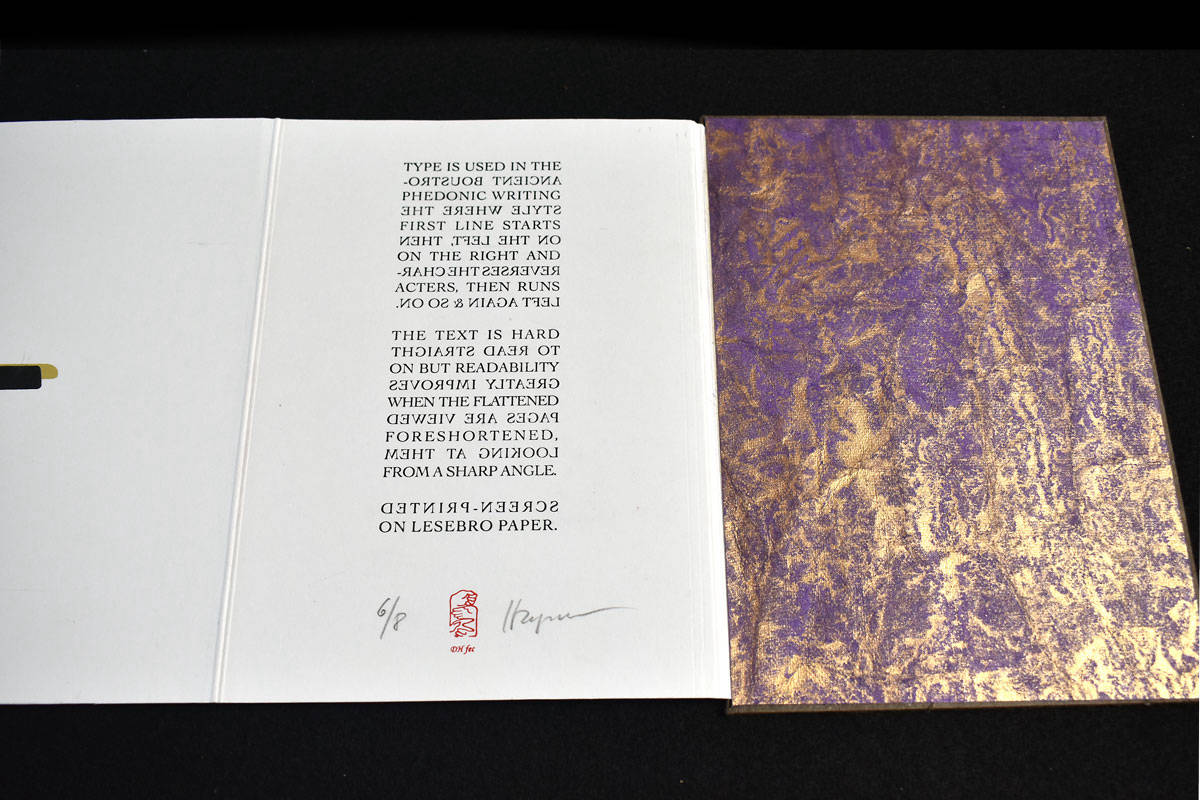 TYPE IS USED IN THE
ANCIENT BOUSTRO-
PHEDONIC WRITING
STYLE WHERE THE
FIRST LINE STARTS
ON THE LEFT, THEN
ON THE RIGHT AND
REVERSES THE CHAR-
ACTERS, THEN RUNS
LEFT AGAIN & SO ON.
THE TEXT IS HARD
TO READ STRAIGHT
ON BUT READABILITY
GREATLY IMPROVES
WHEN THE FLATTENED
PAGES ARE VIEWED
FORESHORTENED,
LOOKING AT THEM
FROM A SHARP ANGLE.
SCREEN-PRINTED
ON LESEBRO PAPER.
6/8
DH fec